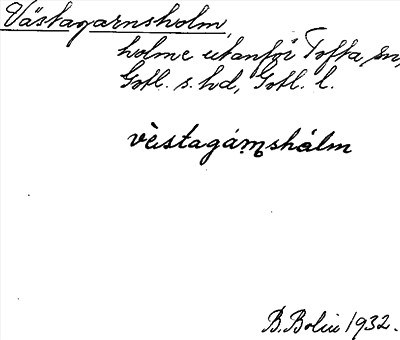 Västagarnsholm,
holme utanför Tofta sn,
Gotl. s. hd, Gotl. l.
vèstagáṃshálm
B. Bolin 1932.